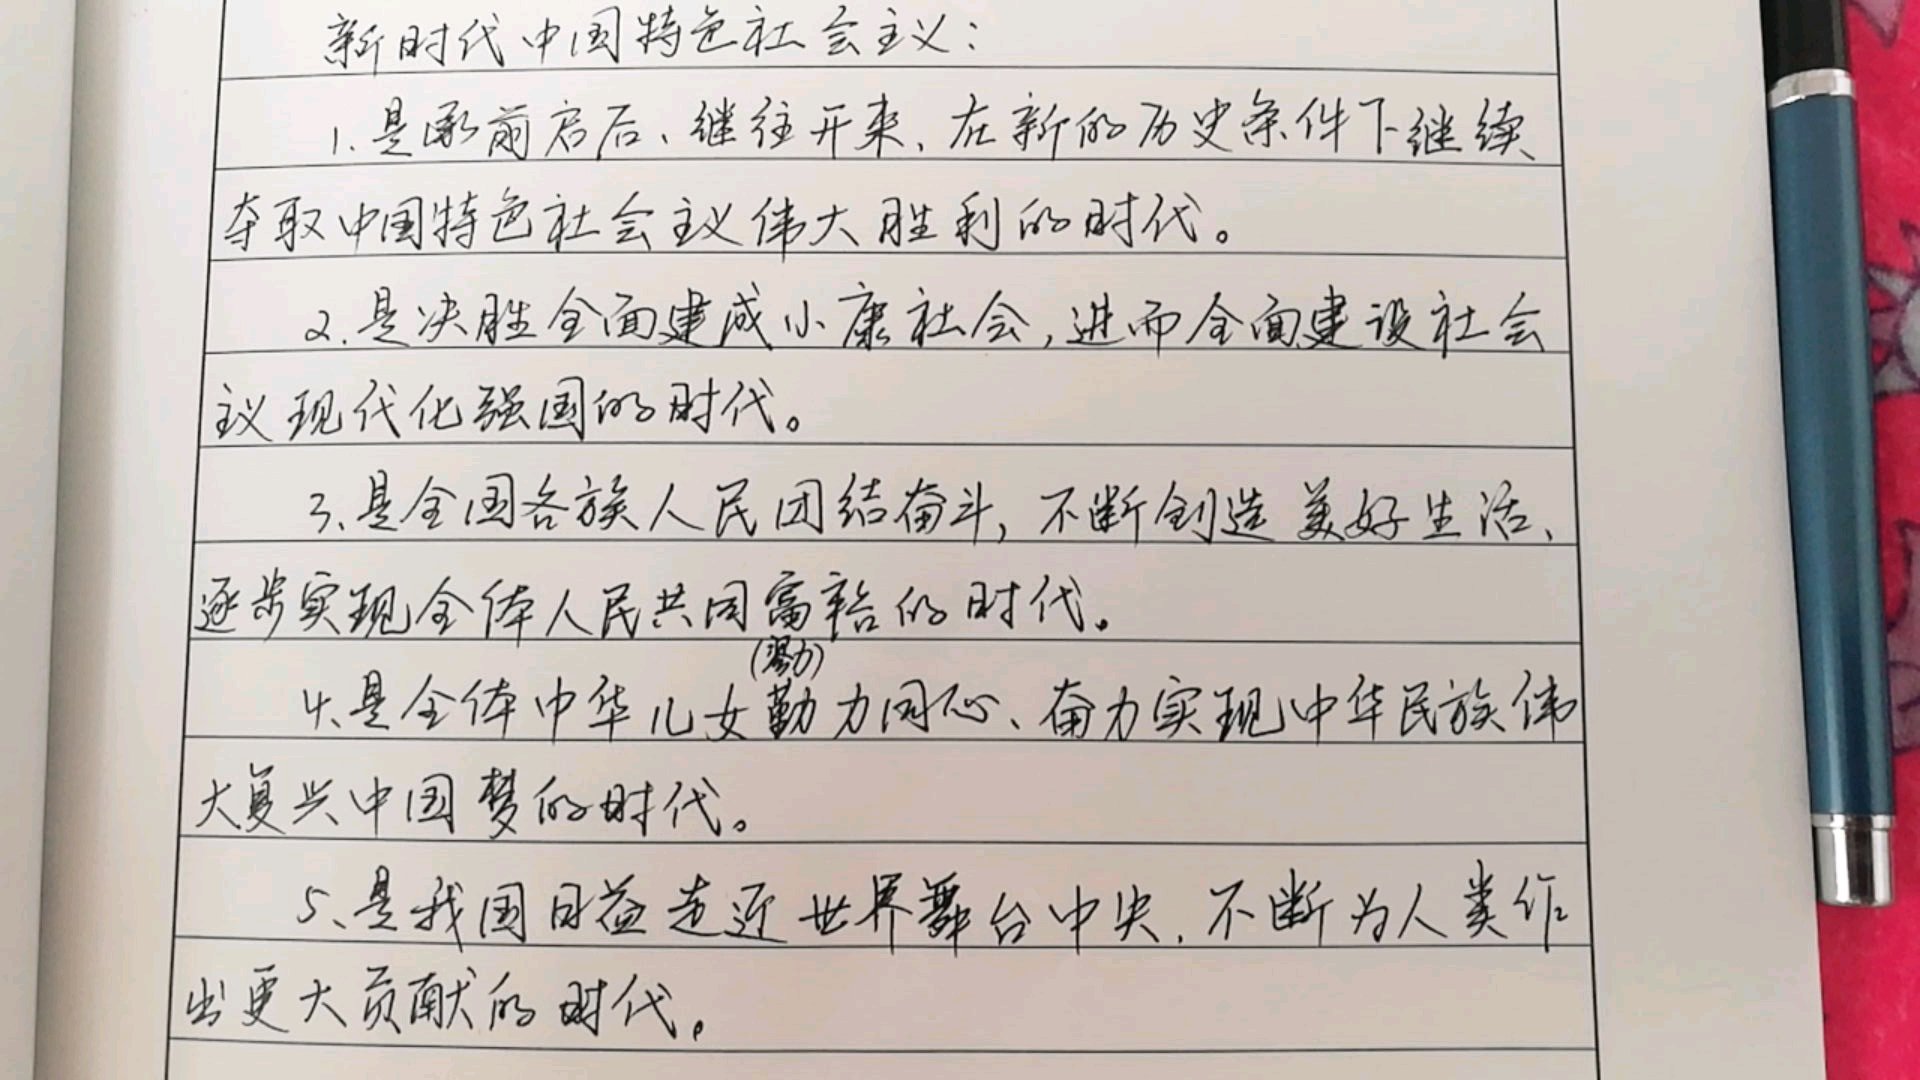 新时代中国特色社会主义:
1.是承前启后、继往开来、在新的历史条件下继续
夺取中国特色社会主义伟大胜利的时代。
2.是决胜全面建成小康社会,进而全面建设社会
主义现代化强国的时代。
3、是全国各族人民团结奋斗,不断创造美好生活、
逐步实现全体人民共同富裕的时代。
(勠力)
4、是全体中华儿女勤力同心、奋力实现中华民族伟
大复兴中国梦的时代。
5、是我国日益走近世界舞台中央、不断为人类作
出更大贡献的时代。